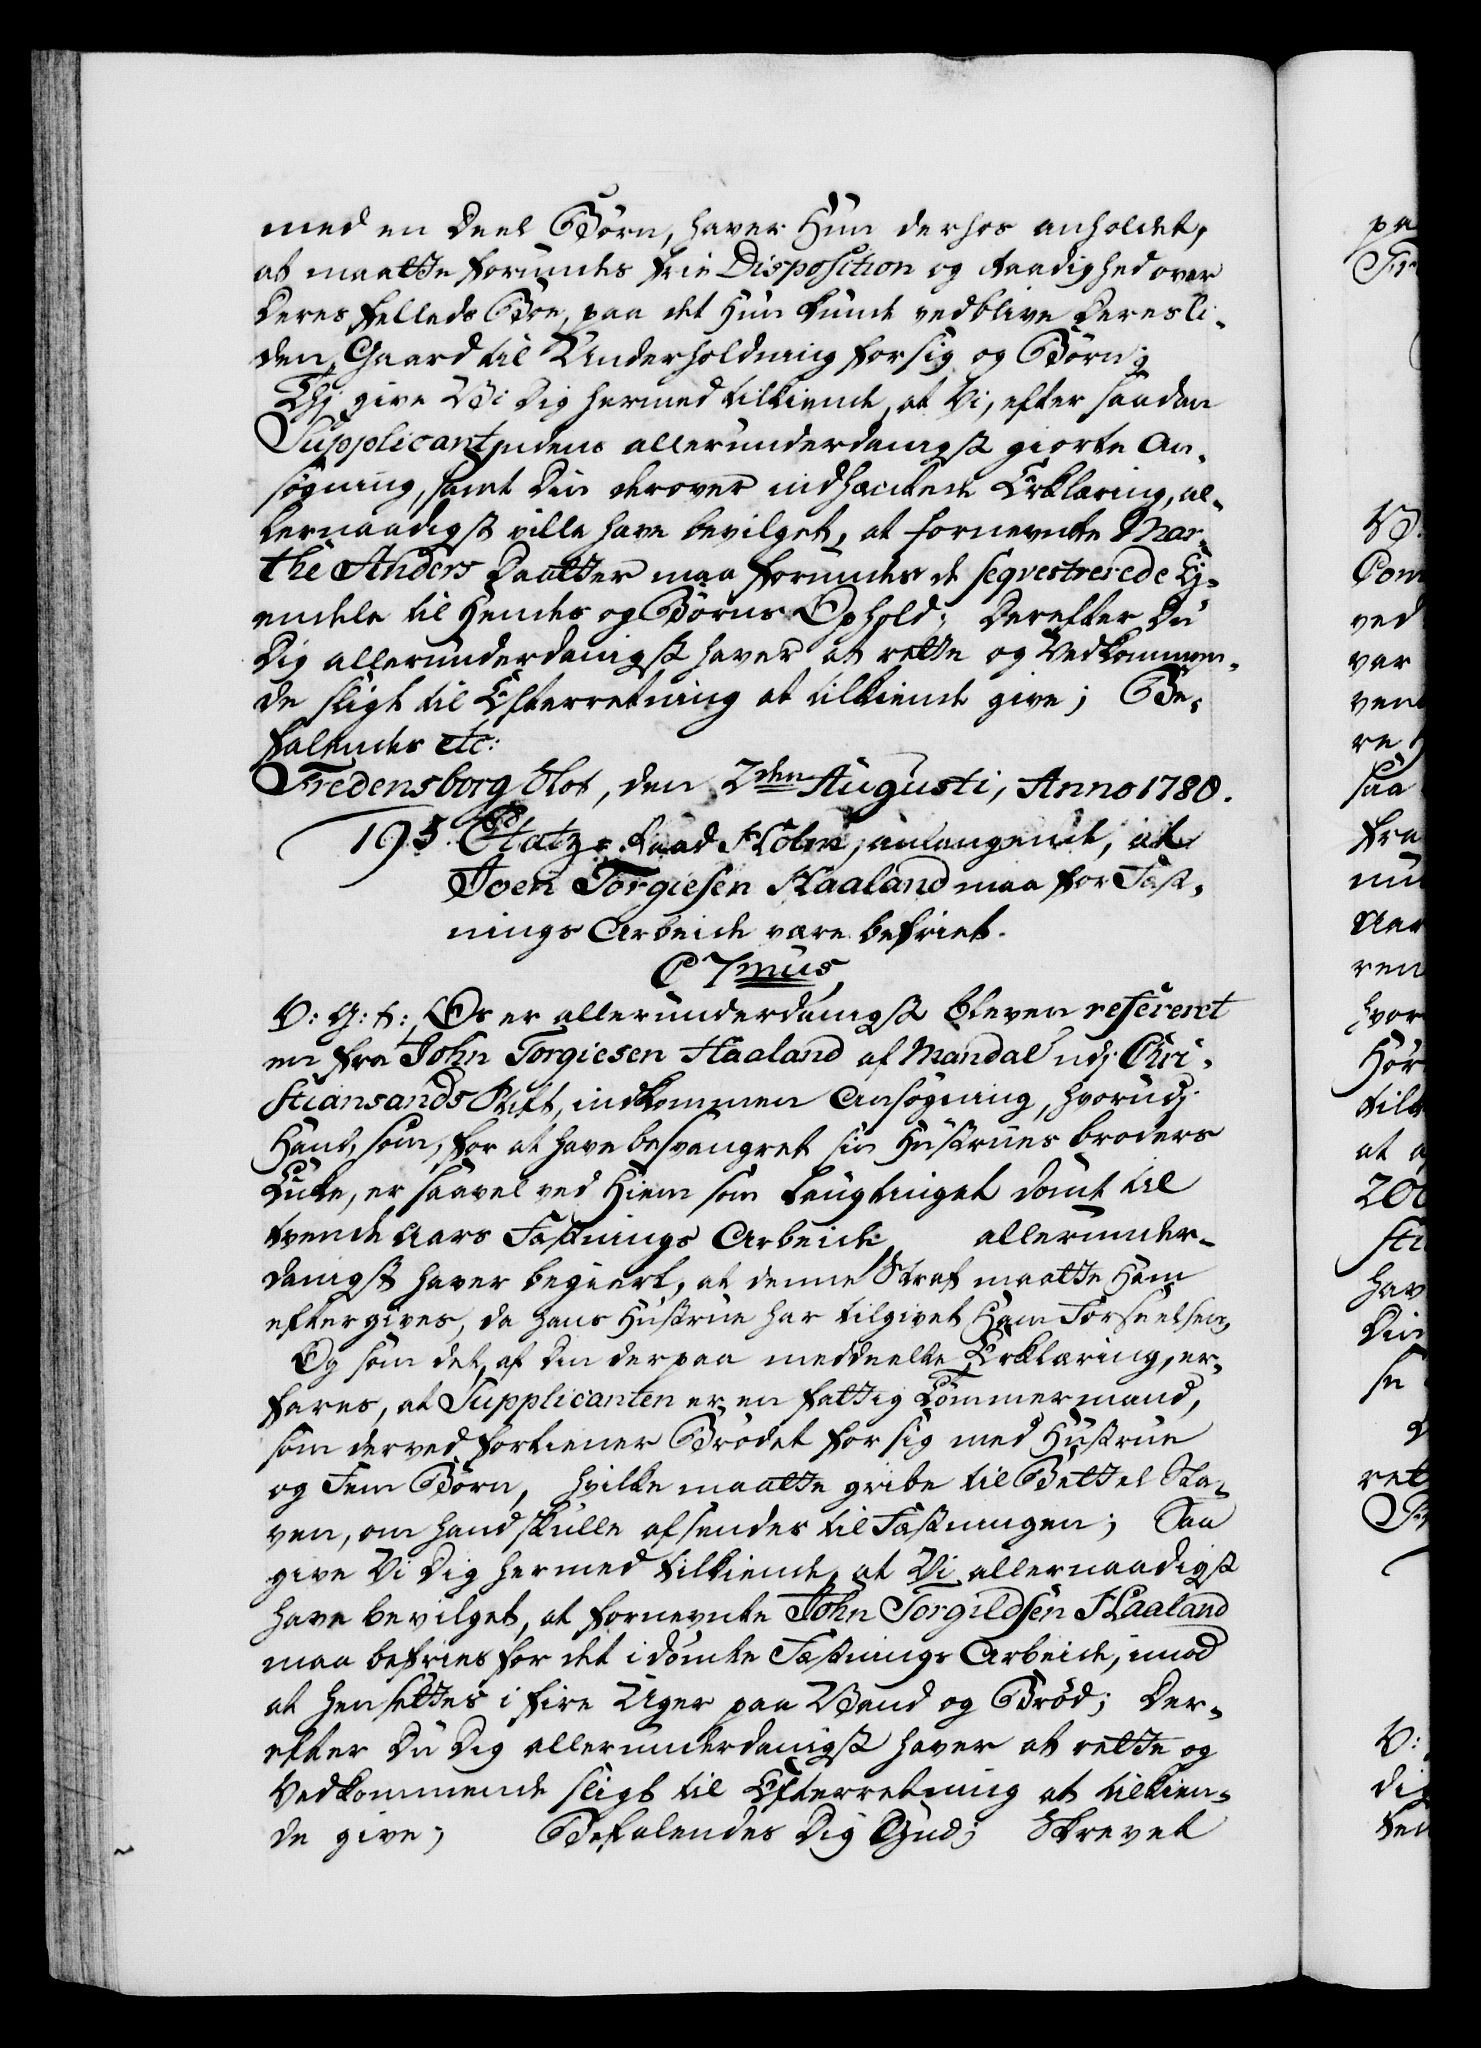 med en Deel Börn, haver Hun derhos anholdet,
at maatte forundes frie Disposition og Raadighed over
Deres fælleds Boe, paa det Hun kunde vedblive Deres li-
den Gaard til Underholdning for sig og Börn;
Thj give Vi Dig hermed tilkiende, at Vi, efter saadan
Supplicantindens allerunderdanigst giorte An-
søgning, samt Din derover indhentede Erklæring, al-
lernaadigst ville have bevilget, at fornevnte Mar-
the Anders Daatter maa forundes de seqvestrerede Ey-
endele til Hendes og Börns Ophold; Derefter Du
Dig allerunderdanigst haver at rette og Vedkommen-
de sligt til Efterretning at tilkiende give; Be-
falendes etc:
Fredensborg Slot, den 2den Augusti, Anno 1780.
195. Etatz-Raad Holm, anlangende, at
Joen Torgiesen Haaland maa for Fæst-
nings Arbeide være befriet.
C 7mus
V: G: T:, Os er allerunderdanigst bleven refereret
en fra John Torgiesen Haaland af Mandal udj Chri-
stiansands Stift, indkommen Ansøgning, hvorudj
Hand, som, for at have besvangret sin Hustrues broders
Enke, er saavel ved Hiem som Laugtinget dömt til
tvende Aars Fæstnings Arbeide, allerunder-
danigst haver begiert, at denne Straf maatte Ham
eftergives, da hans Hustrue har tilgivet Ham Forseelsen,
Og som det, af Din derpaa meddeelte Erklæring, er-
fares, at Supplicanten er en fattig Tömmermand,
som derved fortiener Brödet for sig med Hustrue
og Fem Börn, hvilke maatte gribe til Bettel Sta-
ven, om hand skulle afsendes til Fæstningen; Saa
give Vi Dig hermed tilkiende, at Vi allernaadigst
have bevilget, at fornevnte John Torgildsen Haaland
maa befries for det idömte Fæstnings Arbeide, imod
at hensettes i fire Uger paa Vand og Bröd; Der-
efter Du Dig allerunderdanigst haver at rette og
Vedkommende sligt til Efterretning at tilkien-
de give; Befalendes Dig Gud; Skrevet